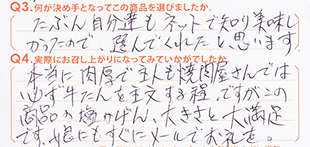 Q3.何が決め手となってこの商品を選びましたか。
たぶん自分達もネットで知り美味し
かったので、選んでくれたと思います
Q4.実際にお召し上がりになってみていかがでしたか。
本当に肉厚で主人も焼肉屋さんでは
必ず牛たんを主文する程、ですがこの
商品の塩かげん、大きさと大満足
です。娘にもすぐにメールでお礼を。